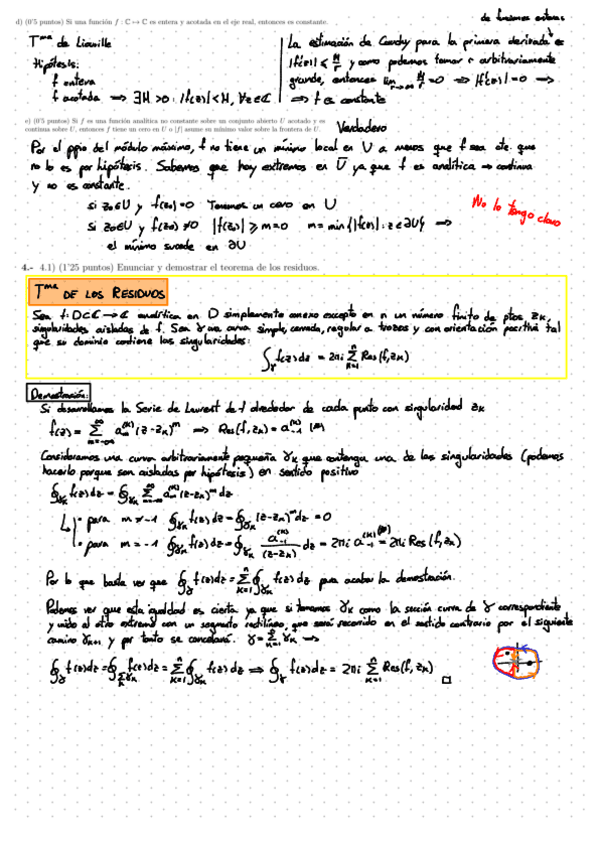 de funciones enteras
d) (0'5 puntos) Si una función f : ℂ ↦ ℂ es entera y acotada en el eje real, entonces es constante.
Tma de Liouville
Hipótesis:
f entera
f acotada ⟹ ∃M>0 : |f(z)|<M, ∀z∈ℂ
La estimación de Cauchy para la primera derivada es
|f'(z)| ≤ M/r y como podemos tomar r arbitrariamente
grande, entonces lim r→∞ M/r = 0 ⟹ |f'(z)| = 0 ⟹
⟹ f es constante
e) (0'5 puntos) Si f es una función analítica no constante sobre un conjunto abierto U acotado y es
continua sobre U, entonces f tiene un cero en U o |f| asume su mínimo valor sobre la frontera de U.
Verdadero
Por el ppio del módulo máximo, f no tiene un mínimo local en U a menos que f sea cte. que
no lo es por hipótesis. Sabemos que hay extremos en U̅ ya que f es analítica ⟹ continua
y no es constante.
si z₀∈U y f(z₀)=0 Tenemos un cero en U
si z₀∈U y f(z₀)≠0 |f(z₀)| ≥ m=0 m = min{|f(z)| : z∈∂U} ⟹
el mínimo sucede en ∂U
No lo tengo claro
4.- 4.1) (1'25 puntos) Enunciar y demostrar el teorema de los residuos.
Tma DE LOS RESIDUOS
Sea f: D⊂ℂ → ℂ analítica en D simplemente conexo excepto en n un número finito de ptos, zk,
singularidades aisladas de f. Sea γ una curva simple, cerrada, regular a trozos y con orientación positiva tal
que su dominio contiene las singularidades:
∫γ f(z)dz = 2πi Σ k=1 n Res(f, zk)
Demostración:
Si desarrollamos la Serie de Laurent de f alrededor de cada punto con singularidad zk
f(z) = Σ m=-∞ ∞ am(k) (z-zk)^m ⟹ Res(f, zk) = a-1(k) (*)
Consideramos una curva arbitrariamente pequeña γk que contenga una de las singularidades (podemos
hacerlo porque son aisladas por hipótesis) en sentido positivo
∮γk f(z)dz = ∮γk Σ m=-∞ ∞ am(k) (z-zk)^m dz
para m ≠ -1 ∮γk f(z)dz = ∮γk (z-zk)^m dz = 0
para m = -1 ∮γk f(z)dz = ∮γk a-1(k)/(z-zk) dz = 2πi a-1(k) (*)= 2πi Res(f, zk)
Por lo que basta ver que ∮γ f(z)dz = Σ k=1 n ∮γk f(z)dz para acabar la demostración.
Podemos ver que esta igualdad es cierta ya que si tomamos γk como la sección curva de γ correspondiente
y unido al otro extremo con un segmento rectilíneo, que será recorrido en el sentido contrario por el siguiente
camino γk+1 y por tanto se cancelará. γ = Σ k=1 n γk ⟹
∮γ f(z)dz = ∮Σγk f(z)dz = Σ k=1 n ∮γk f(z)dz ⟹ ∮γ f(z)dz = 2πi Σ k=1 n Res(f, zk) □